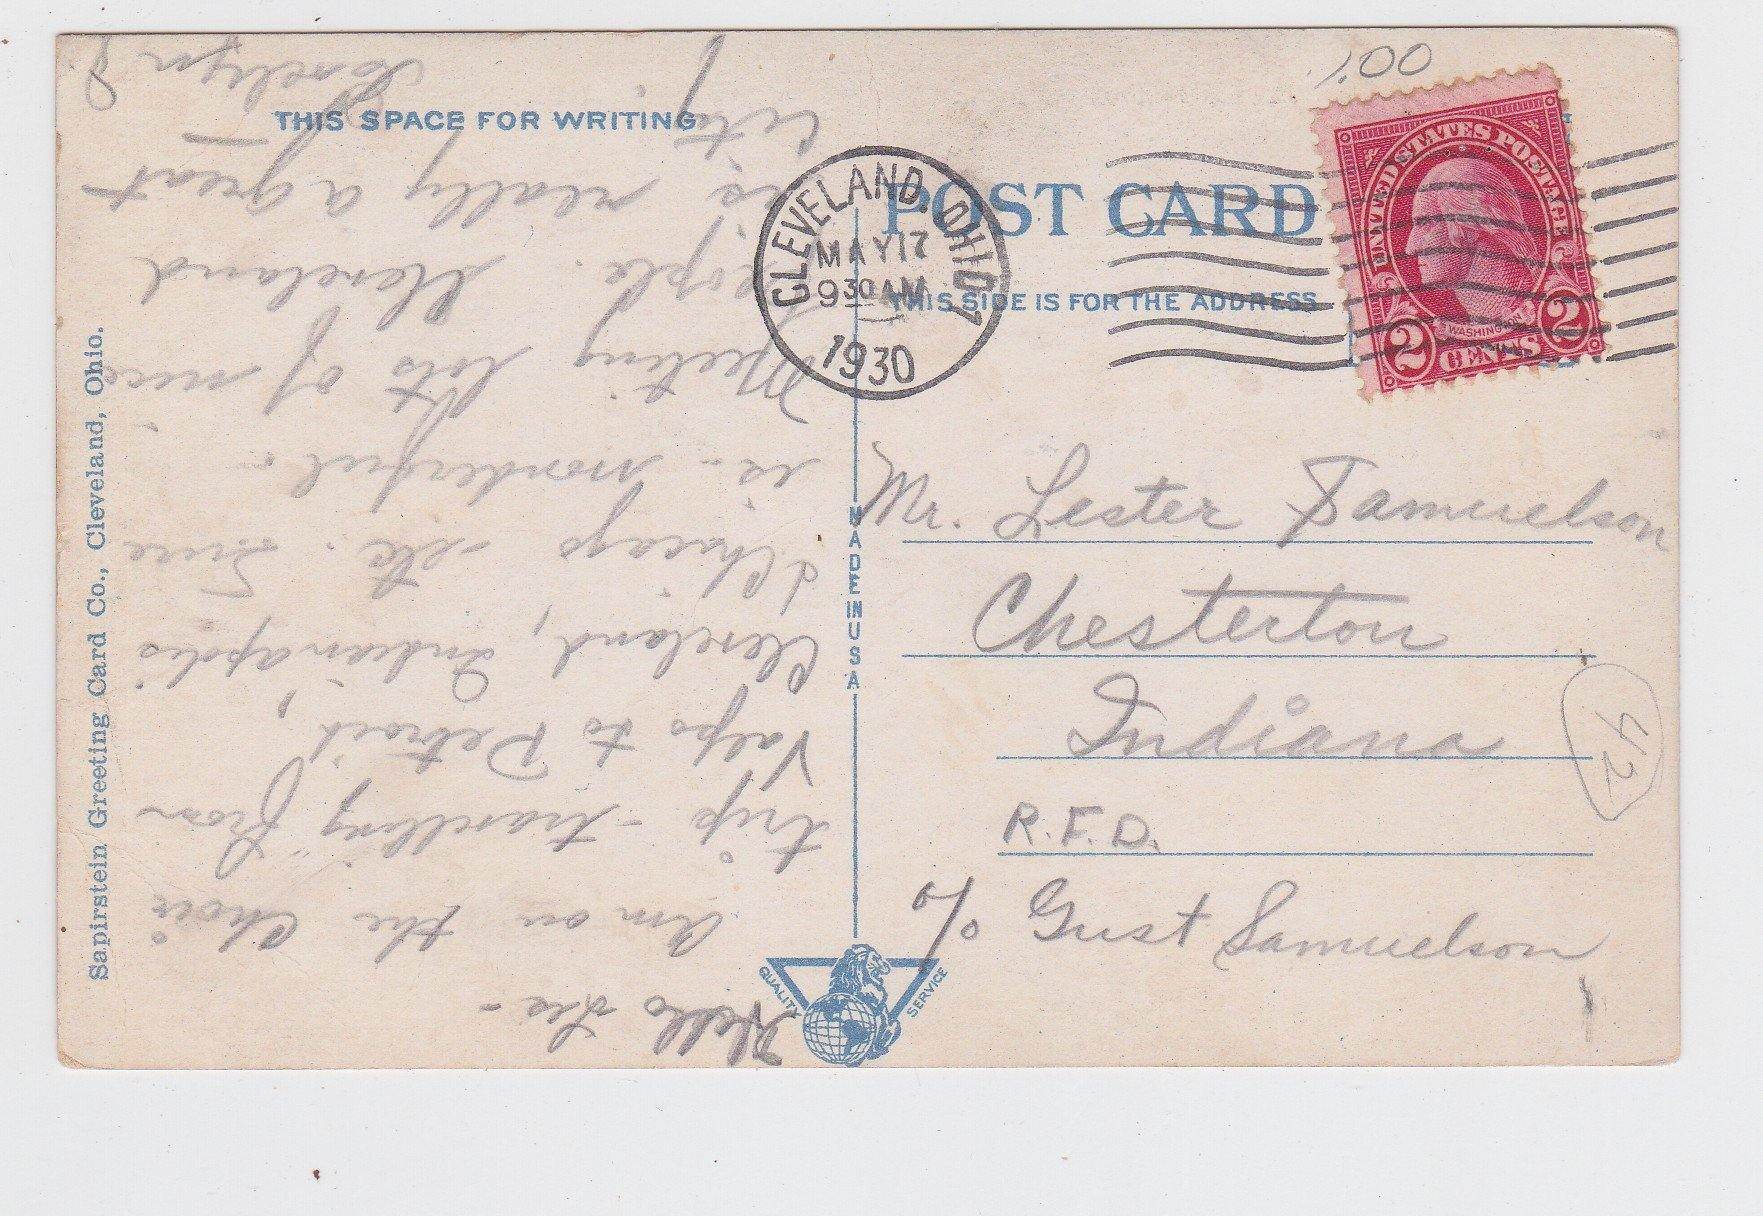 1.00
THIS SPACE FOR WRITING
POST CARD
THIS SIDE IS FOR THE ADDRESS
CLEVELAND, OHIO 1
MAY 17
930 AM
1930
UNITED STATES POSTAGE
WASHINGTON
2 CENTS 2
Mr. Lester Samuelson
Chesterton
Indiana
R.F.D.
c/o Gust Samuelson
42
MADE IN USA
QUALITY SERVICE
Sapirstein Greeting Card Co., Cleveland, Ohio.
Hello Les -
Am on the Choir
trip - travelling from
Valpo to Detroit,
Cleveland, Indianapolis
& Chicago - etc. Time
is - wonderful -
Meeting lots of nice
people. Cleveland
is really a great
city.